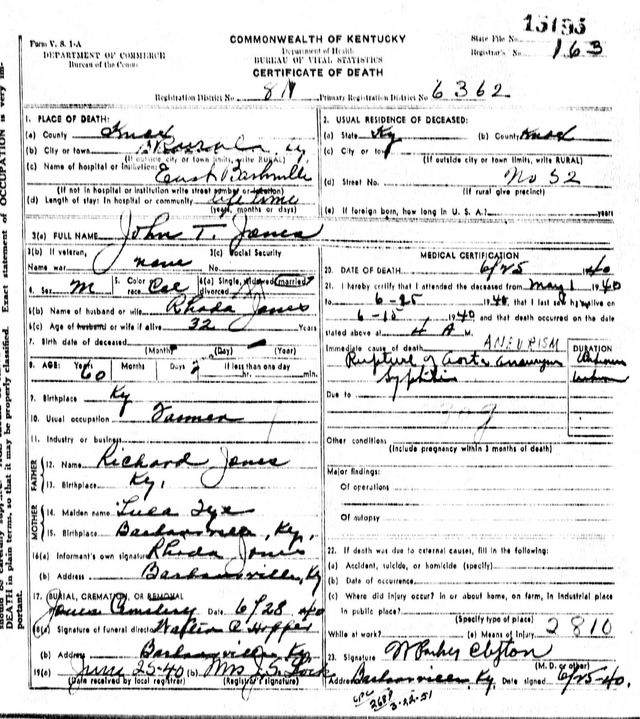 15195
Form V. S. 1-A
DEPARTMENT OF COMMERCE
Bureau of the Census
COMMONWEALTH OF KENTUCKY
Department of Health
BUREAU OF VITAL STATISTICS
CERTIFICATE OF DEATH
State File No.
Registrar's No. 163
Registration District No. 811 Primary Registration District No. 6362
1. PLACE OF DEATH:
(a) County Knox
(b) City or town Ky
(If outside city or town limits, write RURAL)
(c) Name of hospital or institution: East Barbville
(If not in hospital or institution write street number or location)
(d) Length of stay: In hospital or community life time
(years, months or days)
2. USUAL RESIDENCE OF DECEASED:
(a) State Ky (b) County Knox
(c) City or town
(If outside city or town limits, write RURAL)
(d) Street No. No 52
(If rural give precinct)
(e) If foreign born, how long in U. S. A.? years
3(a) FULL NAME John T. Jones
3(b) If veteran, Name war none 3(c) Social Security No.
4. Sex M 5. Color race Col 6(a) Single, widowed, married, divorced
6(b) Name of husband or wife Rhoda Jones
6(c) Age of husband or wife if alive 32 Years
7. Birth date of deceased
(Month) (Day) (Year)
8. AGE: Years 60 Months Days If less than one day hr. min.
9. Birthplace Ky
10. Usual occupation Farmer
11. Industry or business
FATHER
12. Name Richard Jones
13. Birthplace Ky.
MOTHER
14. Maiden name Tye
15. Birthplace Barbourville, Ky.
16(a) Informant's own signature Rhoda Jones
(b) Address Barbourville, Ky
17. BURIAL, CREMATION, OR REMOVAL
Jones Cemetery Date. 6/28 40
18(a) Signature of funeral director Walton C Hopper
(b) Address Barbourville, Ky
19(a) June 25-40 (b) Mrs J. S. Lock
(Date received by local registrar) (Registrar's signature)
MEDICAL CERTIFICATION
20. DATE OF DEATH 6/25 1940
21. I hereby certify that I attended the deceased from May 1 1940
to 6-25 1940, that I last saw him alive on
6-15 1940 and that death occurred on the date
stated above at 4 A M.
Immediate cause of death ANEURISM
DURATION
Rupture of aorta aneurysm Unknown
Syphilis
Due to
Other conditions
(Include pregnancy within 3 months of death)
Major findings:
Of operations
Of autopsy
22. If death was due to external causes, fill in the following:
(a) Accident, suicide, or homicide (specify)
(b) Date of occurrence
(c) Where did injury occur? in or about home, on farm, in industrial place
in public place?
(Specify type of place)
While at work? (e) Means of Injury 2810
23. Signature W Parker Clayton
(M. D. or other)
Address Barbourville, Ky. Date signed 6/25-40.
3-22-51
Exact statement of OCCUPATION is very im-
DEATH in plain terms, so that it may be properly classified.
portant.